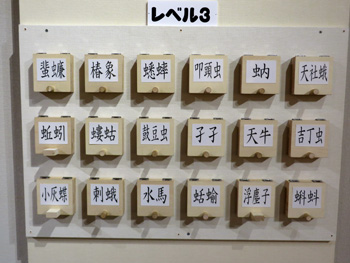 レベル3
蜚蠊 椿象 蟋蟀 叩頭虫 蚋 天社蛾
蚯蚓 螻蛄 鼓豆虫 孑孑 天牛 吉丁虫
小灰蝶 刺蛾 水馬 蛞蝓 浮塵子 蝌蚪